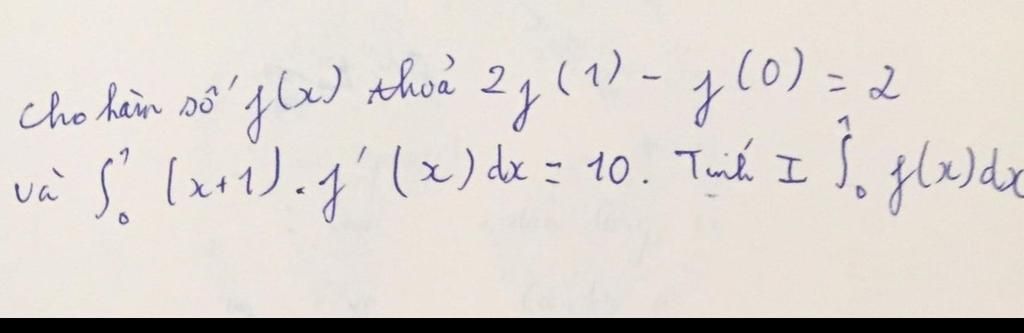 Cho hàm số f(x) thoả 2f(1) - f(0) = 2
và ∫₀¹ (x+1).f'(x)dx = 10. Tính I ∫₀¹ f(x)dx